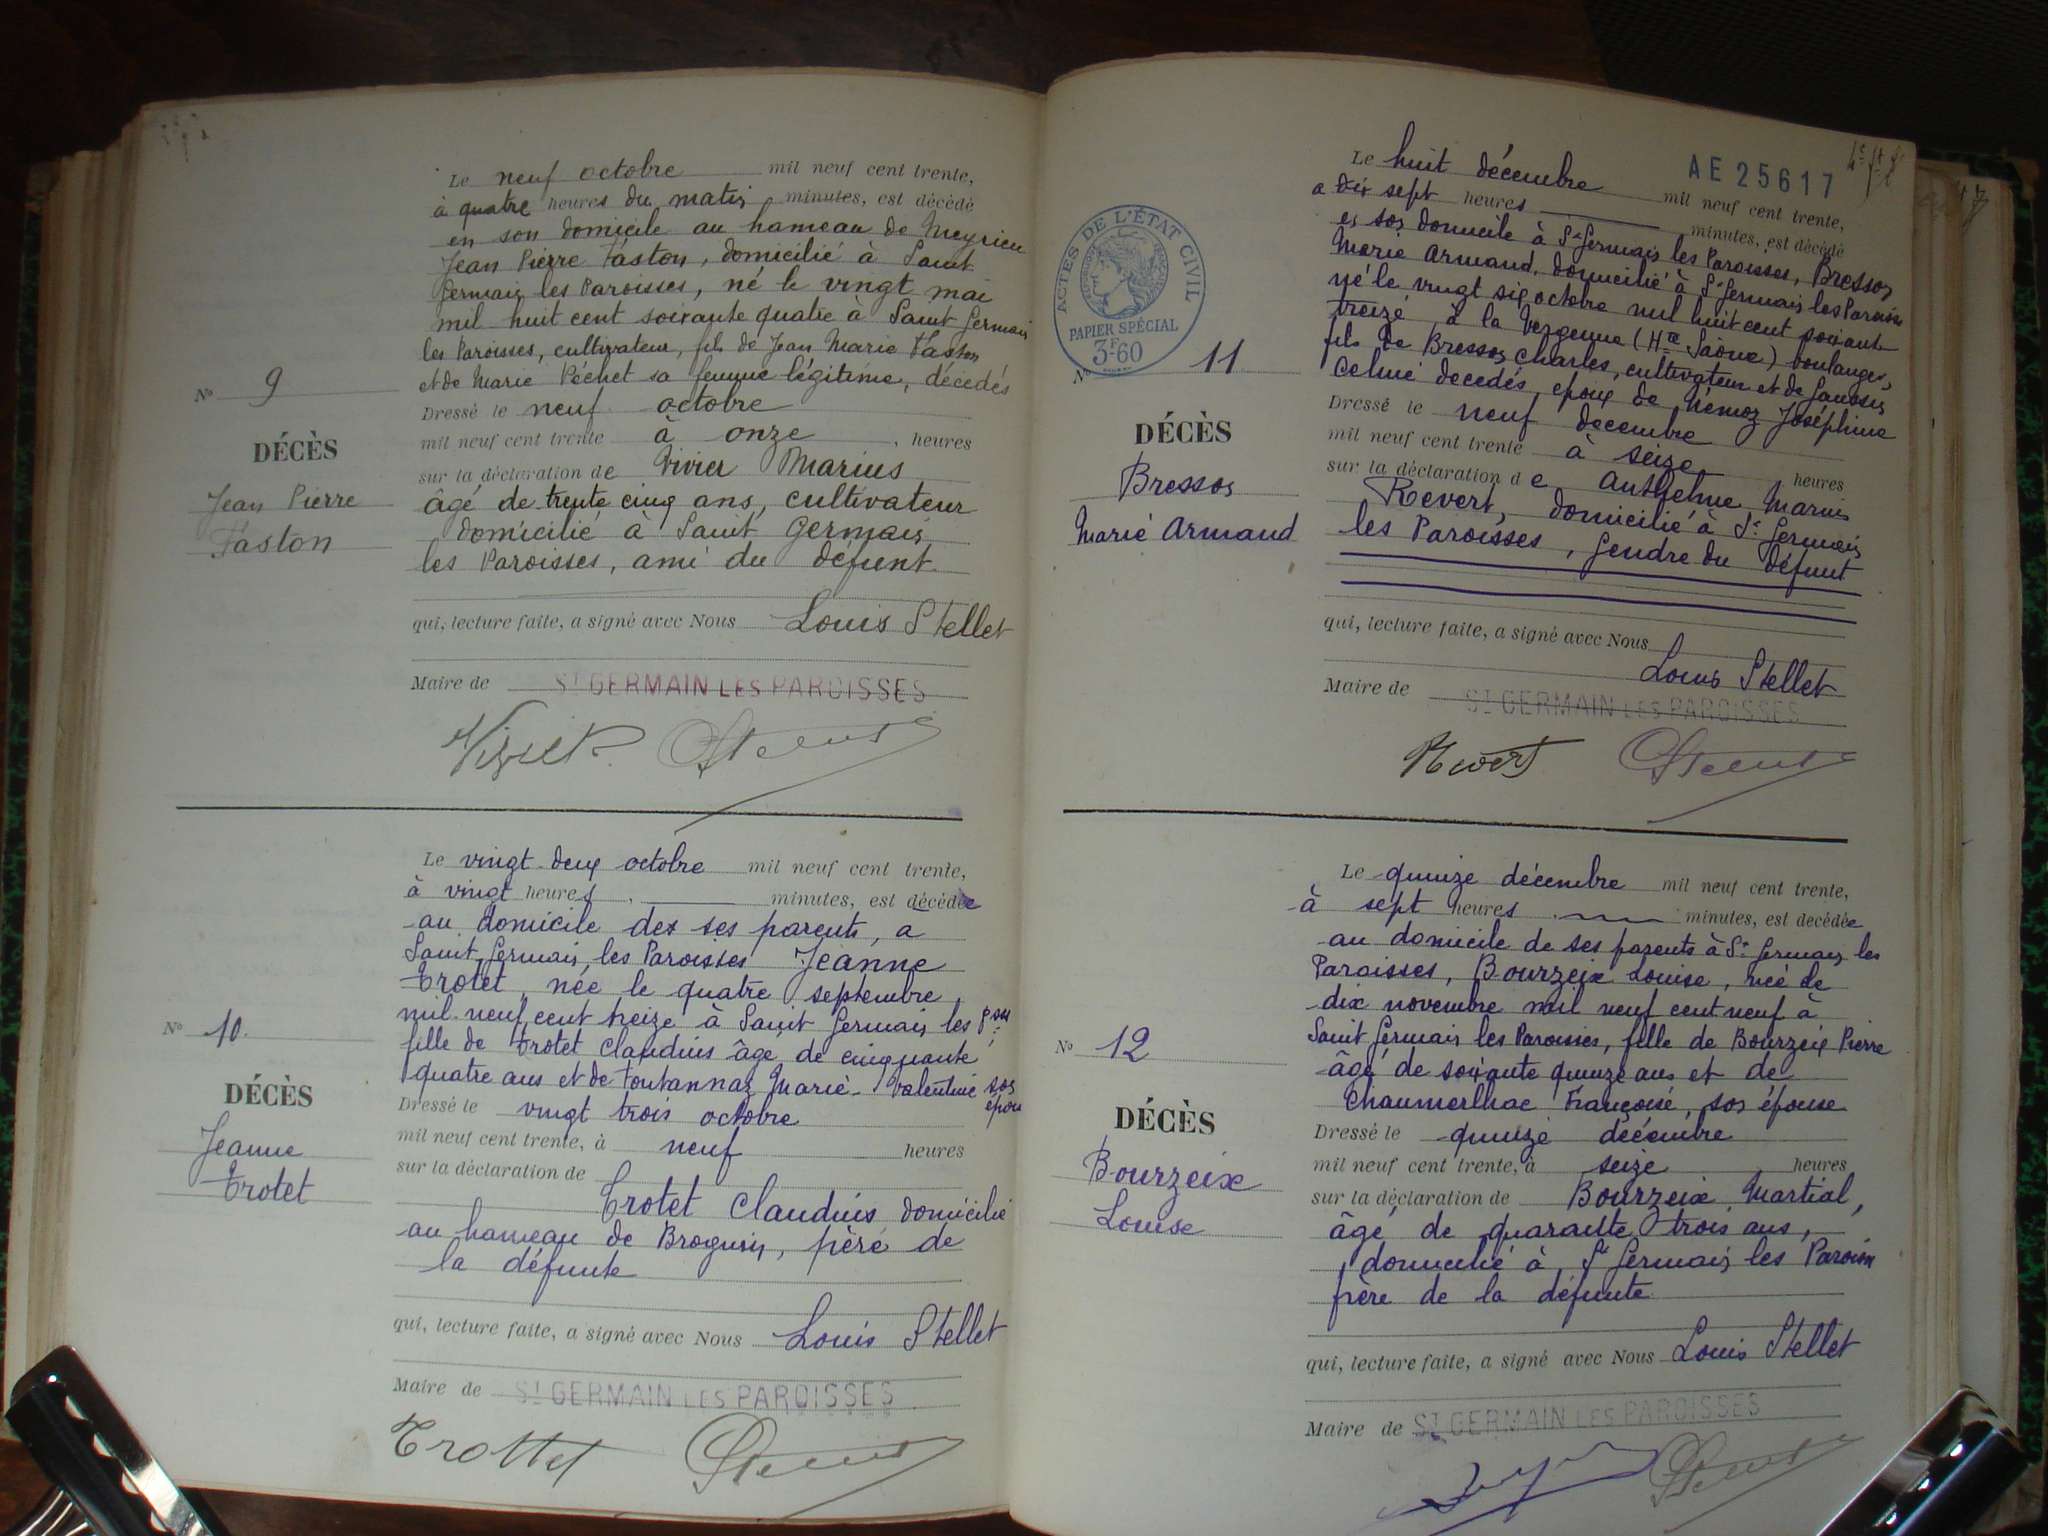 Le neuf octobre mil neuf cent trente,
à quatre heures du matin minutes, est décédé
en son domicile au hameau de Meyrieu
Jean Pierre Faston, domicilié à Saint
Germain les Paroisses, né le vingt mai
mil huit cent soixante quatre à Saint Germain
les Paroisses, cultivateur, fils de Jean Marie Faston
et de Marie Péchet sa femme légitime, décédés
Nº 9
DÉCÈS
Jean Pierre
Faston
Dressé le neuf octobre
mil neuf cent trente à onze, heures
sur la déclaration de Vivier Marius
âgé de trente cinq ans, cultivateur
domicilié à Saint Germain
les Paroisses, ami du défunt.
qui, lecture faite, a signé avec Nous Louis Stellet
Maire de ST GERMAIN LES PAROISSES
Le vingt-deux octobre mil neuf cent trente,
à vingt heures, minutes, est décédée
au domicile des ses parents, a
Saint Germain les Paroisses Jeanne
Trotet, née le quatre septembre,
mil neuf cent treize à Saint Germain les
fille de Trotet Claudius âgé de cinquante
quatre ans et de Fontannaz Marie-Valentine son
épouse
Nº 10.
DÉCÈS
Jeanne
Trotet
Dressé le vingt trois octobre
mil neuf cent trente, à neuf heures
sur la déclaration de
Trotet Claudius domicilié
au hameau de Brognin, père de
la défunte
qui, lecture faite, a signé avec Nous Louis Stellet
Maire de ST GERMAIN LES PAROISSES
Trottet
AE 25617
Le huit décembre mil neuf cent trente,
a dix sept heures minutes, est décédé
en son domicile à St Germain les Paroisses, Bresson
Marie Armand, domicilié à St Germain les Paroisses
né le vingt six octobre mil huit cent soixante
treize à la Vergenne (Hte Saône) boulanger,
fils de Bresson Charles, cultivateur et de
Celine decedés, epoux de Némoz Joséphine
ACTES DE L'ÉTAT CIVIL
PAPIER SPÉCIAL
3F60
Nº 11
DÉCÈS
Bresson
Marie Armand
Dressé le neuf decembre
mil neuf cent trente à seize heures
sur la déclaration de Anthelme Marius
Revert, domicilié à St Germain
les Paroisses, gendre du défunt
qui, lecture faite, a signé avec Nous
Louis Stellet
Maire de ST GERMAIN LES PAROISSES
Revert
Le quinze décembre mil neuf cent trente,
à sept heures, minutes, est décédée
au domicile de ses parents à St Germain les
Paroisses, Bourzeix Louise, née le
dix novembre mil neuf cent neuf à
Saint Germain les Paroisses, fille de Bourzeix Pierre
âgé de soixante quinze ans et de
Chaumerlhac Françoise, son épouse
Nº 12
DÉCÈS
Bourzeix
Louise
Dressé le quinze décembre
mil neuf cent trente, à seize heures
sur la déclaration de Bourzeix Martial,
âgé de quarante trois ans,
domicilié à St Germain les Paroisses
frère de la défunte
qui, lecture faite, a signé avec Nous Louis Stellet
Maire de ST GERMAIN LES PAROISSES